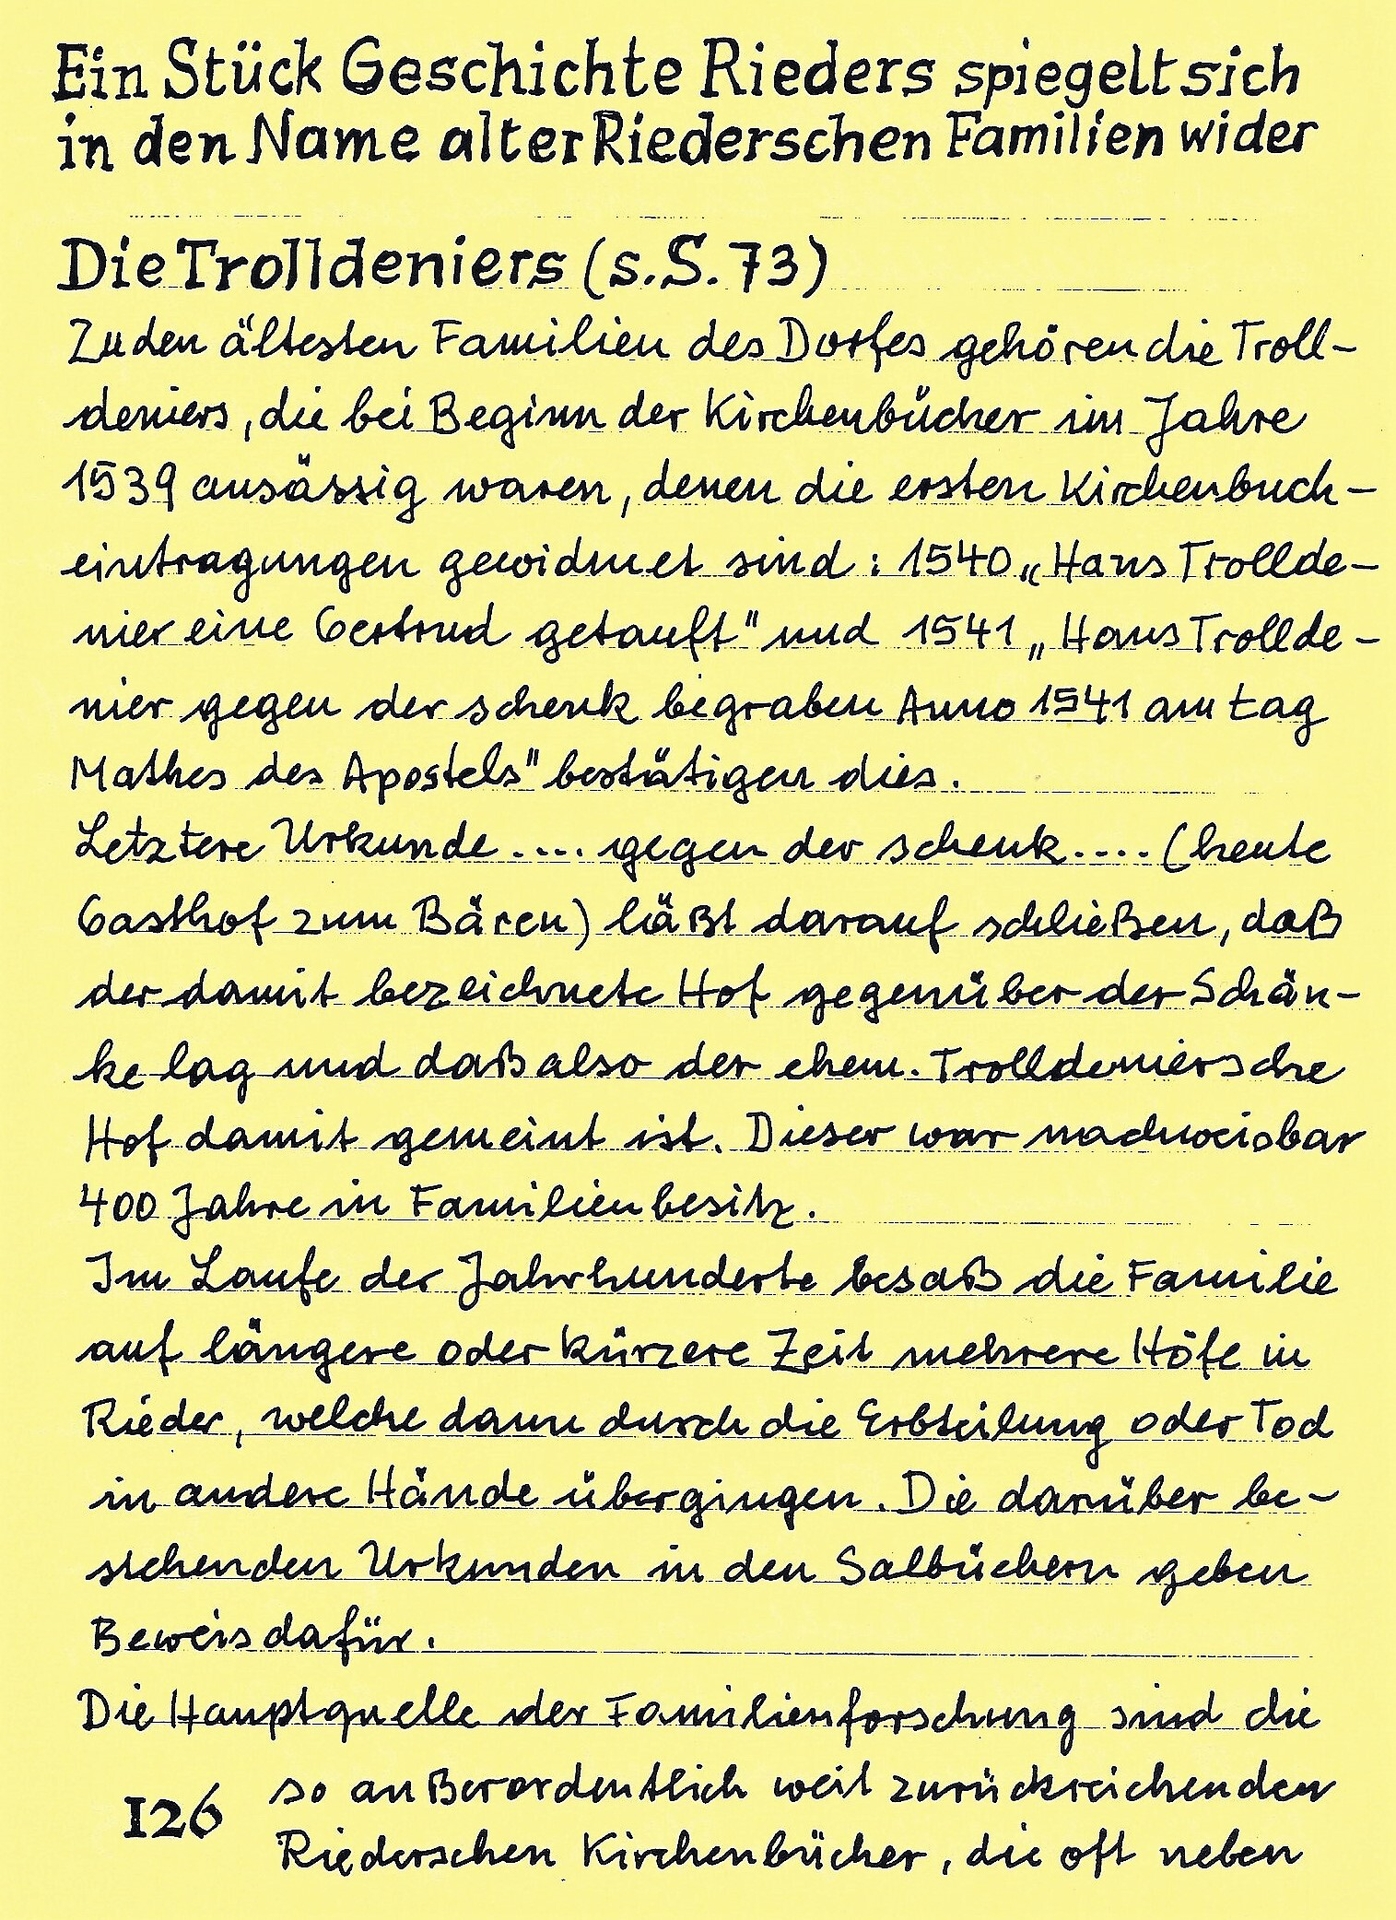 Ein Stück Geschichte Rieders spiegelt sich
in den Name alter Riederschen Familien wider
Die Trolldeniers (s. S. 73)
Zu den ältesten Familien des Dorfes gehören die Troll-
deniers, die bei Beginn der Kirchenbücher im Jahre
1539 ansässig waren, denen die ersten Kirchenbuch-
eintragungen gewidmet sind: 1540 „Hans Trollde-
nier eine Gertrud getauft" und 1541 „Hans Trollde-
nier gegen der schenk begraben Anno 1541 am tag
Mathes des Apostels" bestätigen dies.
Letztere Urkunde .... gegen der schenk .... (heute
Gasthof zum Bären) läßt darauf schließen, daß
der damit bezeichnete Hof gegenüber der Schän-
ke lag und daß also der ehem. Trolldeniersche
Hof damit gemeint ist. Dieser war nachweisbar
400 Jahre in Familienbesitz.
Im Laufe der Jahrhunderte besaß die Familie
auf längere oder kürzere Zeit mehrere Höfe in
Rieder, welche dann durch die Erbteilung oder Tod
in andere Hände übergingen. Die darüber be-
stehenden Urkunden in den Salbüchern geben
Beweis dafür.
Die Hauptquelle der Familienforschung sind die
so außerordentlich weit zurückreichenden
126
Riederschen Kirchenbücher, die oft neben